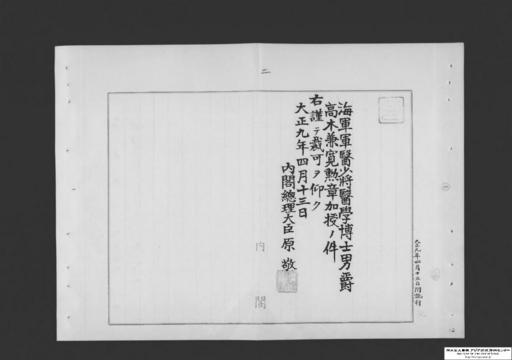 二
海軍軍醫少將醫學博士男爵
高木兼寛勲章加授ノ件
右謹テ裁可ヲ仰ク
大正九年四月十三日
內閣總理大臣 原 敬
內閣